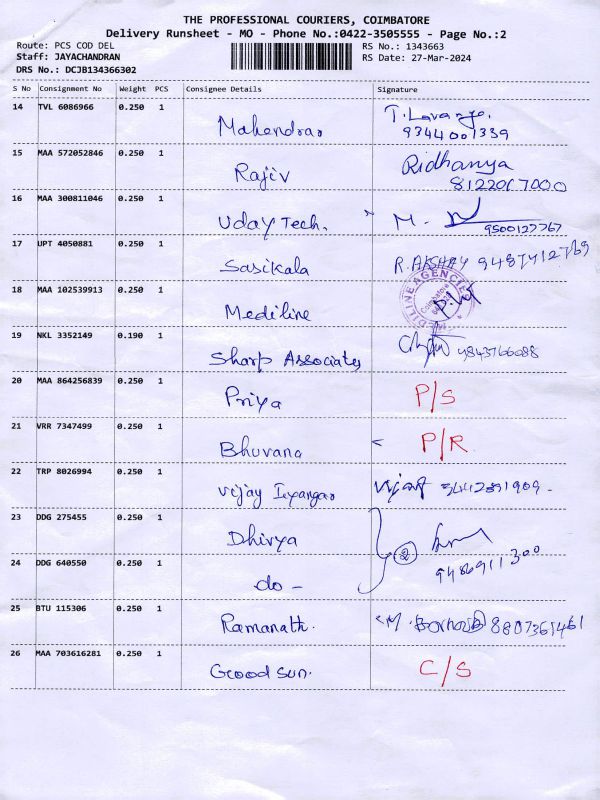 THE PROFESSIONAL COURIERS, COIMBATORE
Delivery Runsheet - MO - Phone No.:0422-3505555 - Page No.:2
Route: PCS COD DEL RS No.: 1343663
Staff: JAYACHANDRAN RS Date: 27-Mar-2024
DRS No.: DCJB134366302
S No Consignment No Weight PCS Consignee Details Signature
14 TVL 6086966 0.250 1 Mahendran T. Lavanya
9344001339
15 MAA 572052846 0.250 1 Rajiv Ridhanya
8122067000
16 MAA 300811046 0.250 1 Uday Tech. M.
9500127767
17 UPT 4050881 0.250 1 Sasikala R. AKSHAY 9487412769
18 MAA 102539913 0.250 1 Mediline
MEDILINE AGENCIES
Coimbatore
19 NKL 3352149 0.190 1 Sharp Associates 9843766088
20 MAA 864256839 0.250 1 Priya P/S
21 VRR 7347499 0.250 1 Bhuvana P/R
22 TRP 8026994 0.250 1 Vijay Iyangar Vijay
23 DDG 275455 0.250 1 Dhivya
2
24 DDG 640550 0.250 1 do - 9486911300
25 BTU 115306 0.250 1 Ramanath. M. 8807361461
26 MAA 703616281 0.250 1 Good sun. C/S